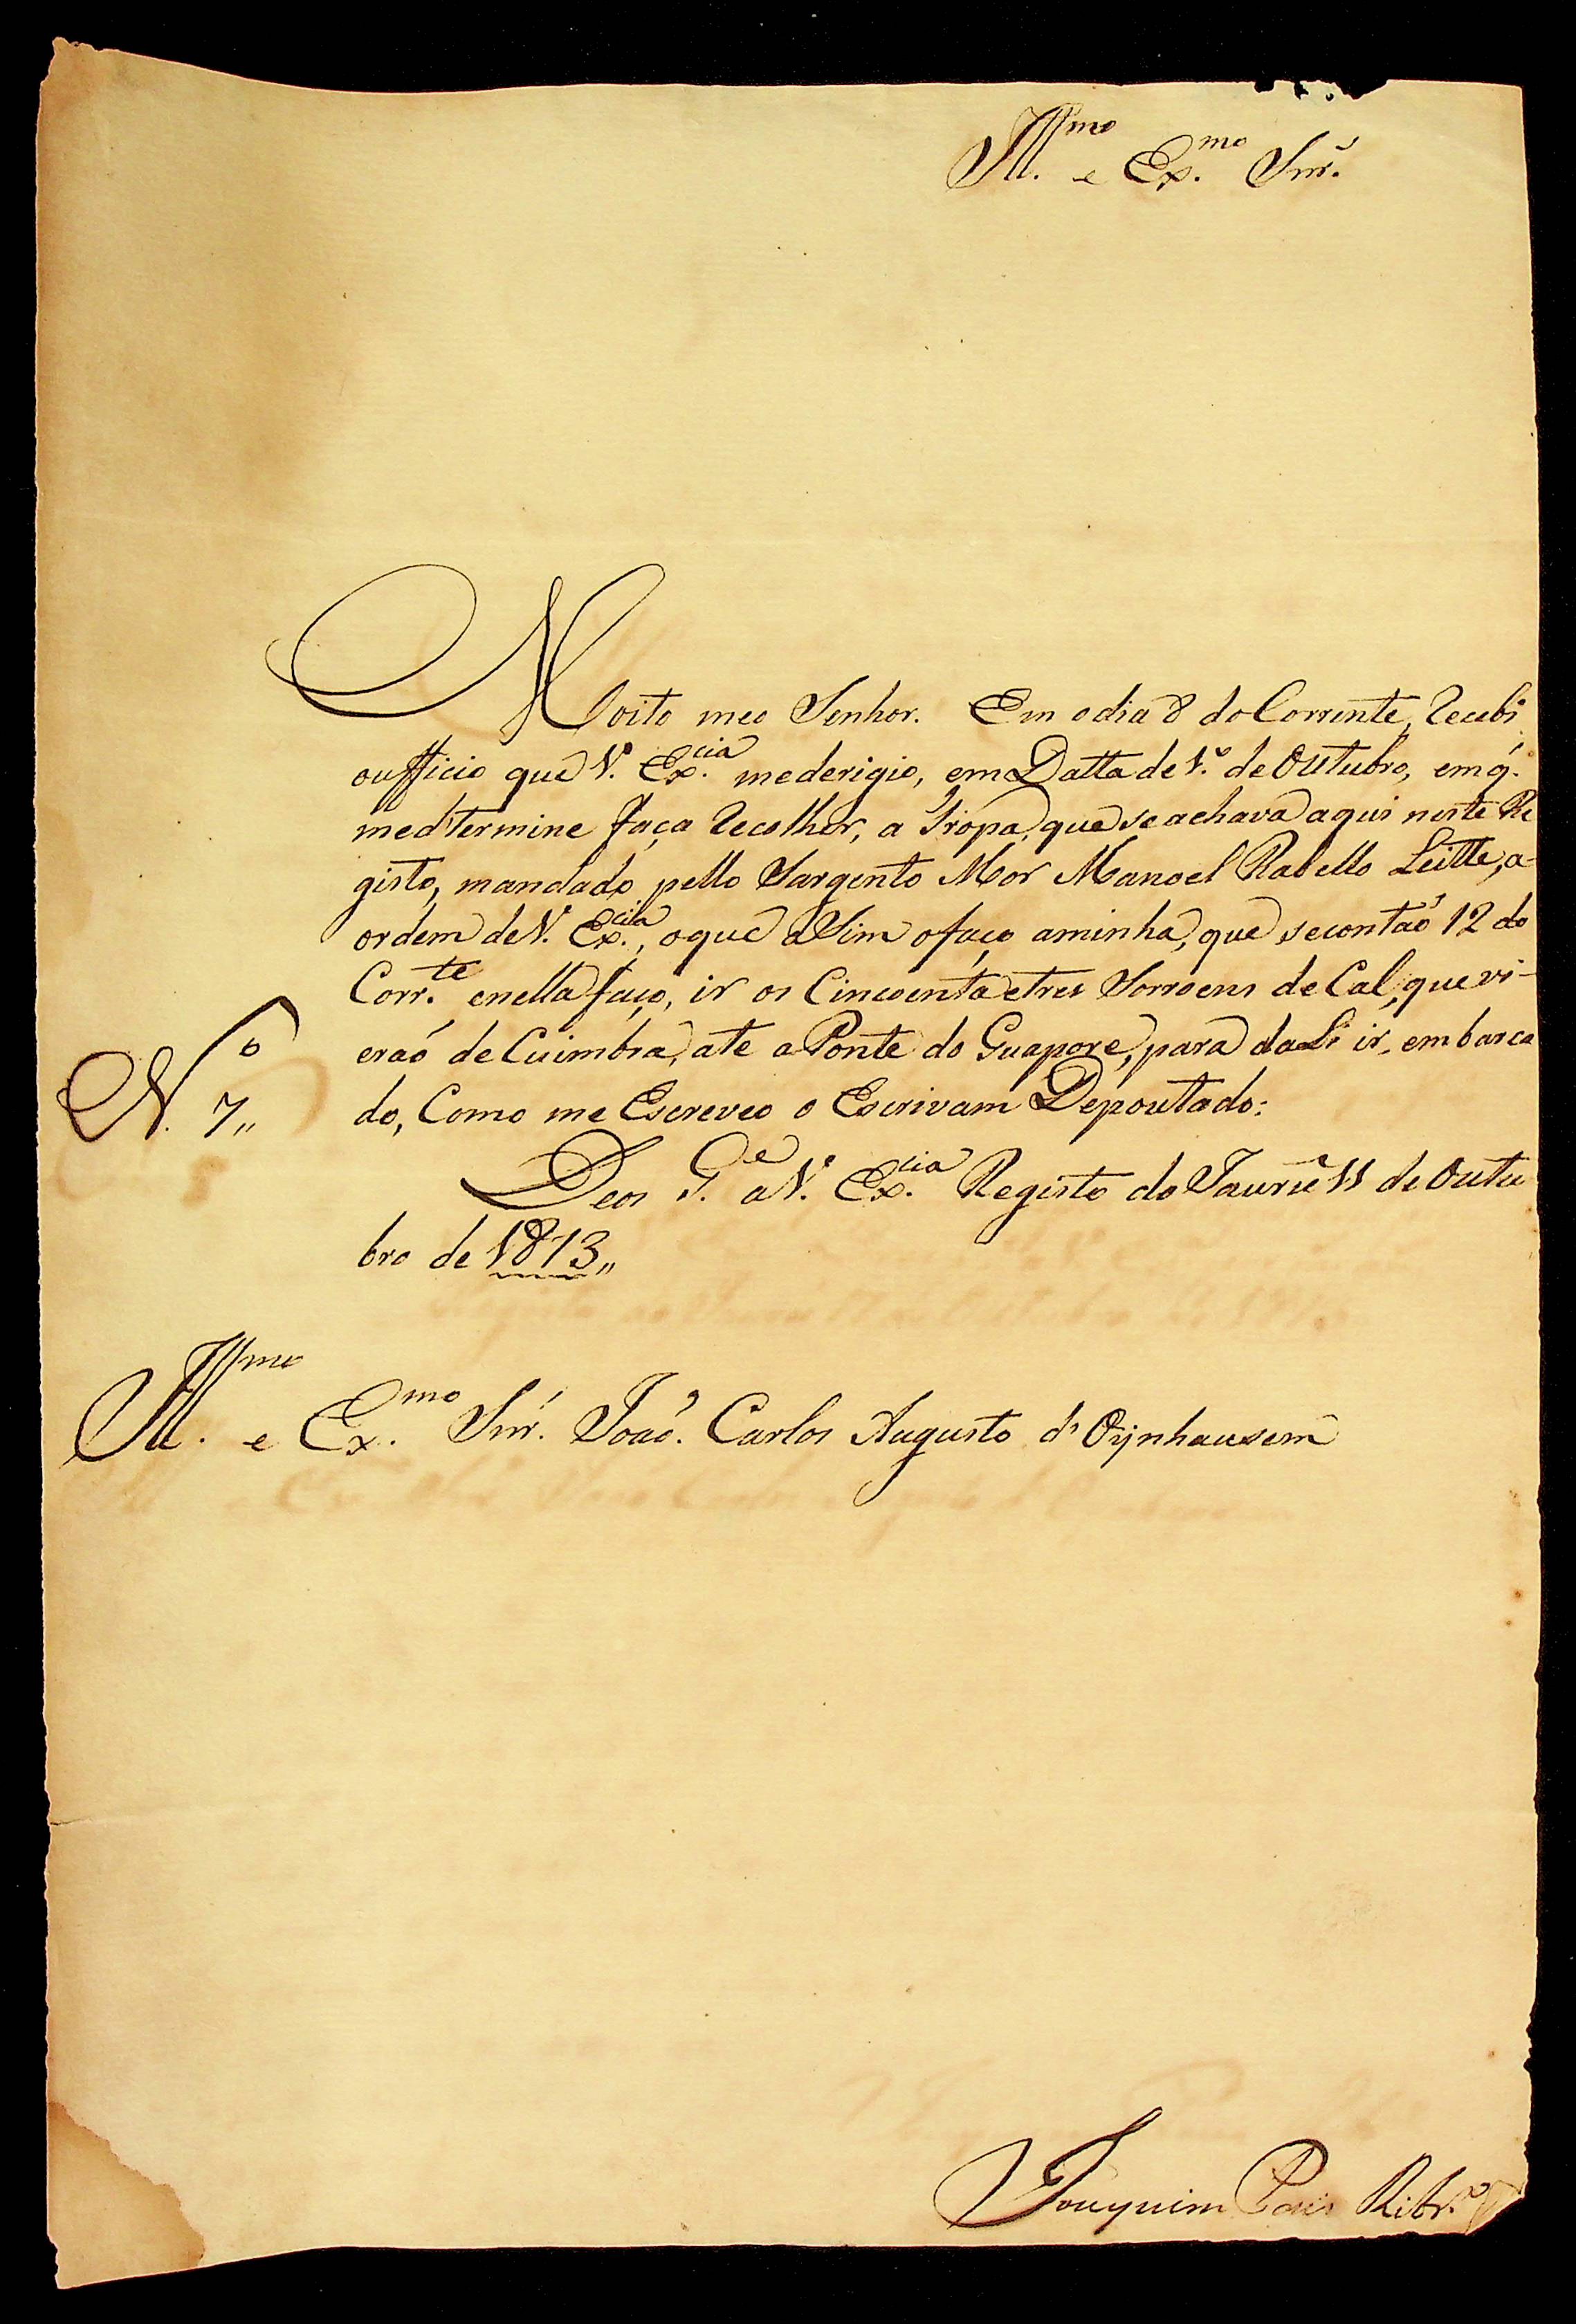 Ill.mo e Ex.mo Snr.
Moito meo Senhor. Em o dia 8 do Corrente, Recebi
oufficio que V. Ex.cia mederigio, em Datta de 1.º de Outubro, em q.
med'termine faça Recolher, a Tropa, que se achava aqui neste Re
gisto, mandado pello Sargento Mor Manoel Rabello Leitte, a-
ordem de V. Ex.cia, oque aSim ofaço aminhã, que secontaõ 12 do
Corr.te enella faço, ir os Cincoenta etres Sorroens de Cal, que vi-
eraõ de Cuimbra, ate a Ponte do Guapore, para daLi ir, embarca
do, Como me Escreveo o Escrivam Depoutado:
N.º 7,,
Deos G.e a V. Ex.cia Registo do Jaurú 11 de Outu
bro de 1813,,
Ill.mo e Ex.mo Snr. Joaõ. Carlos Augusto d' Oÿnhausem
Joaquim Pais Ribr.º